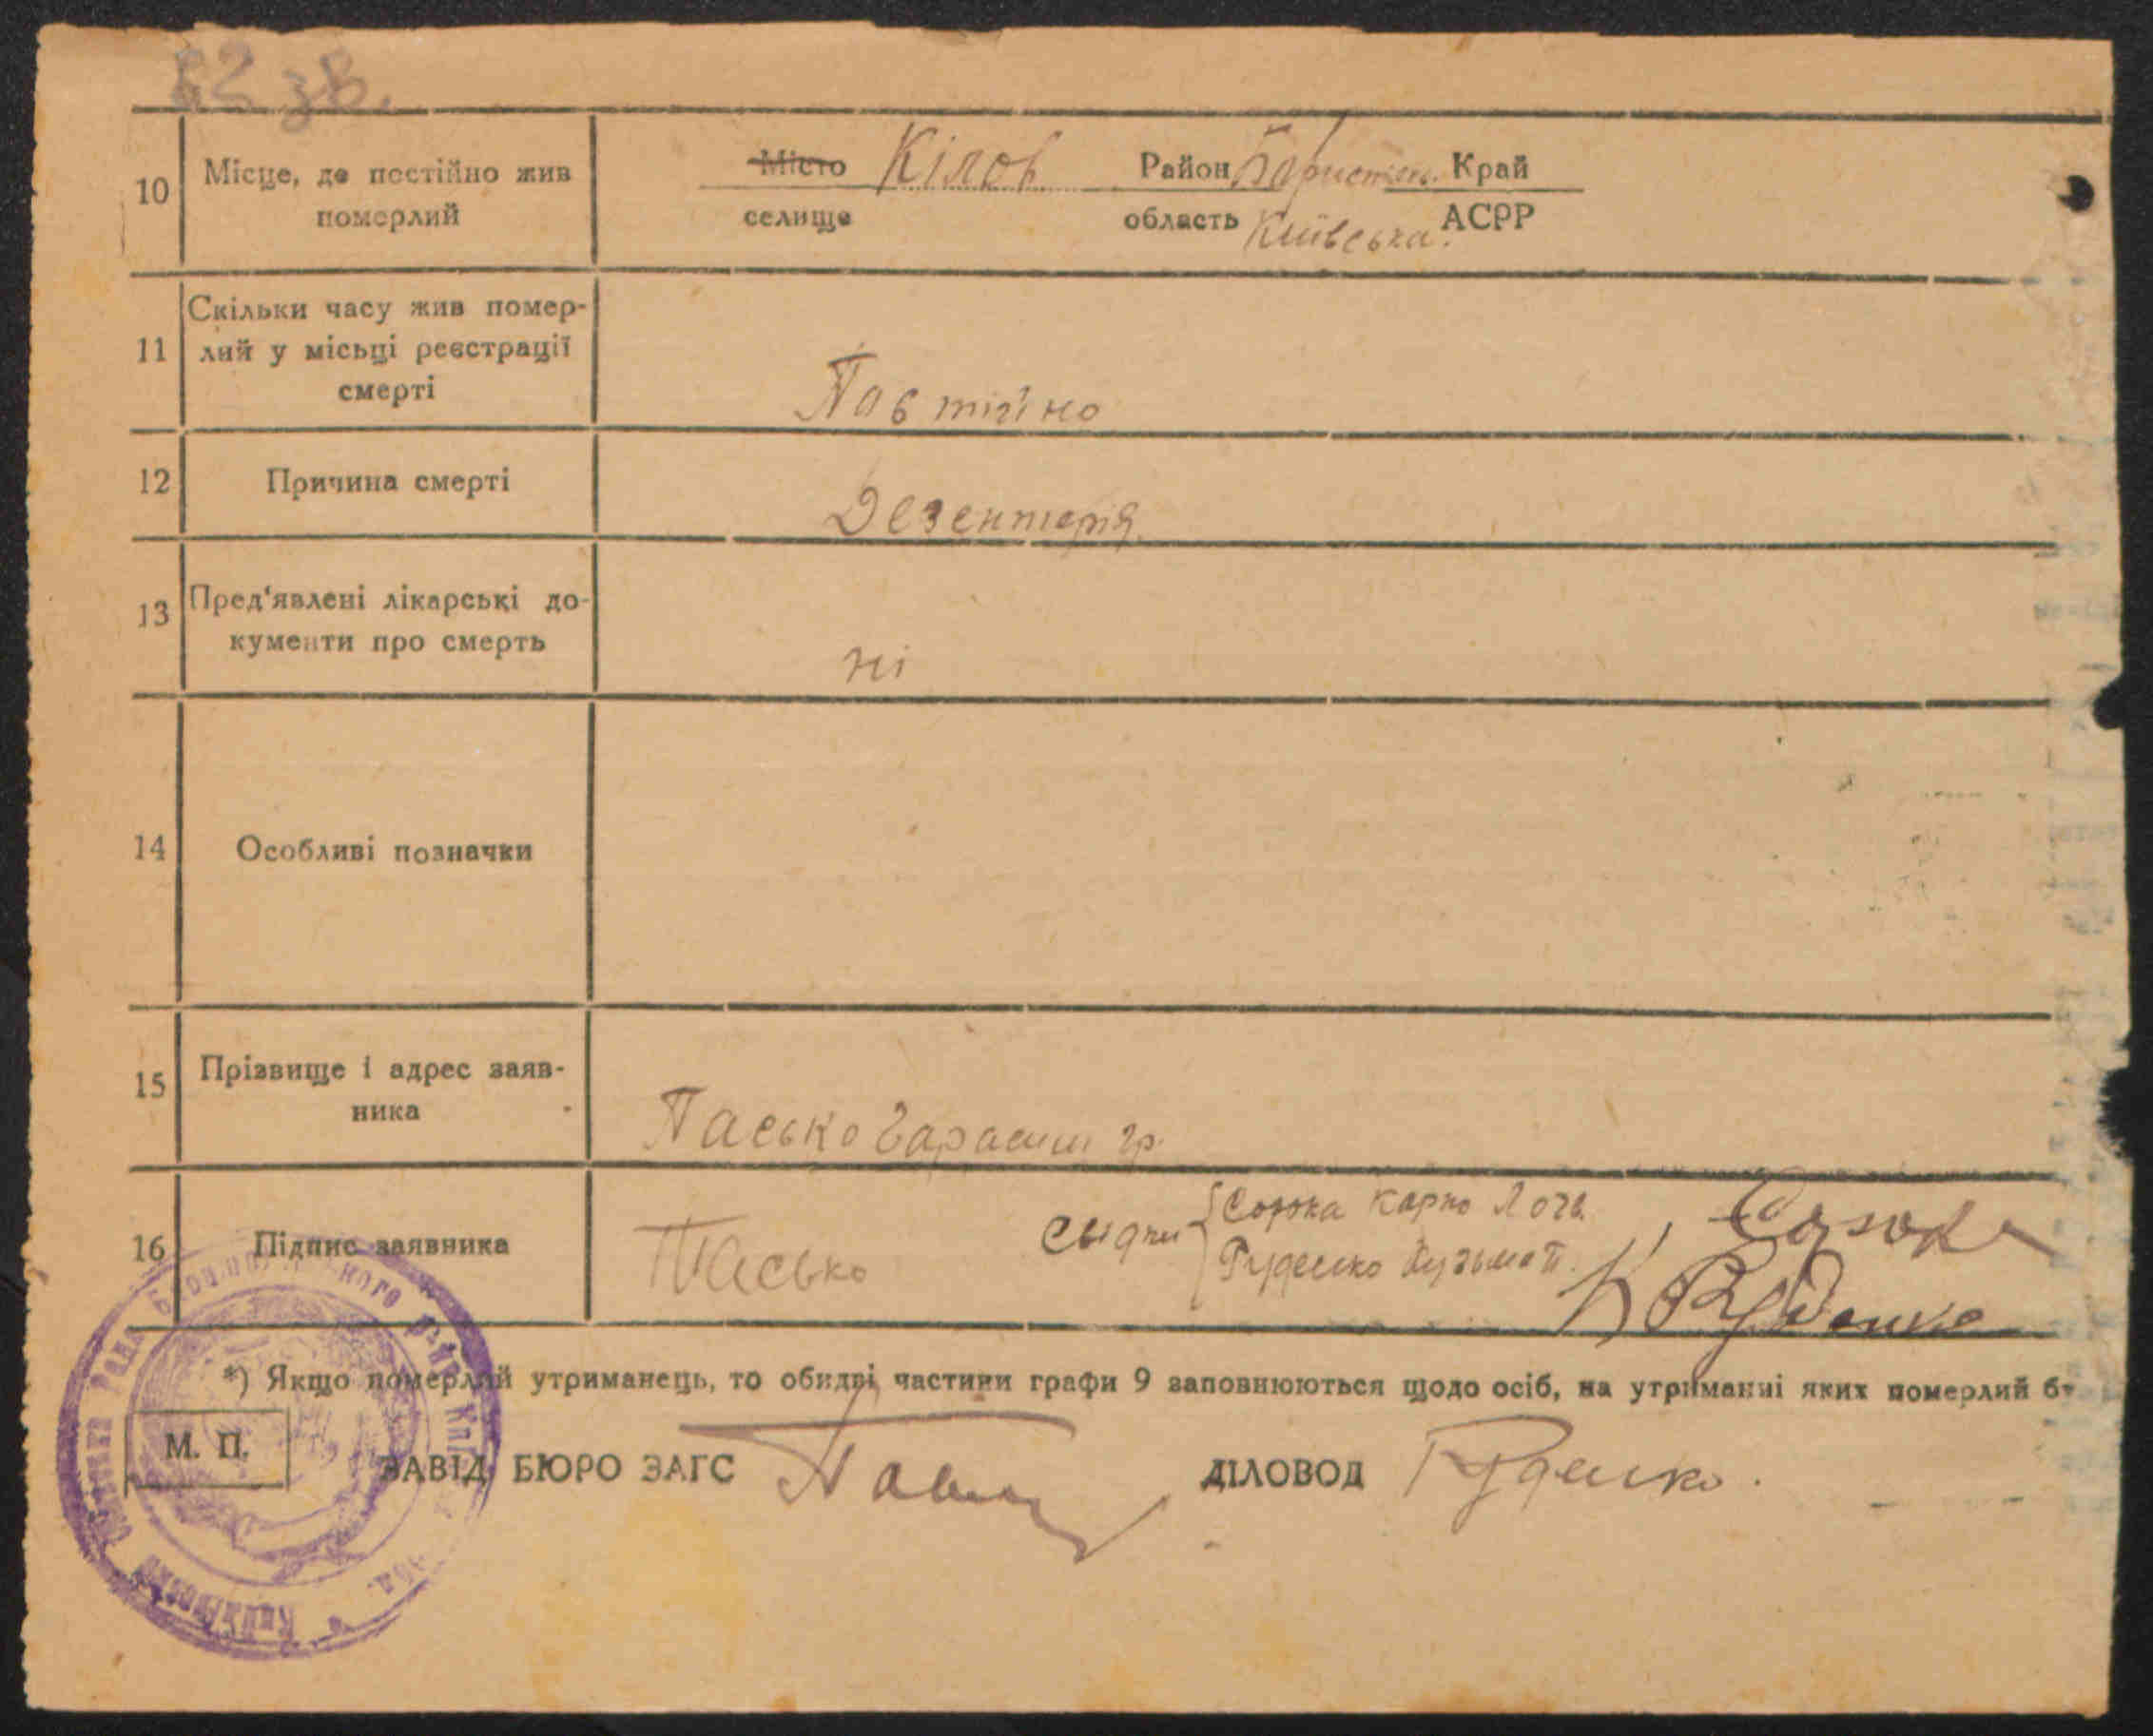 82 зв.
10 Місце, де постійно жив померлий
Місто Кілов Район Бориспіль. Край
селище область Київська. АСРР
11 Скільки часу жив помер-
лий у місьці реєстрації
смерті
Постійно
12 Причина смерті
Дезентерія.
13 Пред'явлені лікарські до-
кументи про смерть
ні
14 Особливі позначки
15 Прізвище і адрес заяв-
ника
Пасько Гарасим гр.
16 Підпис заявника
Пасько
Сорока Карпо
Руденко Кузьма П.
Сорока
К Руденко
*) Якщо померлий утриманець, то обидві частини графи 9 заповнюються щодо осіб, на утриманні яких померлий
М. П.
ЗАВІД. БЮРО ЗАГС
ДІЛОВОД Руденко.